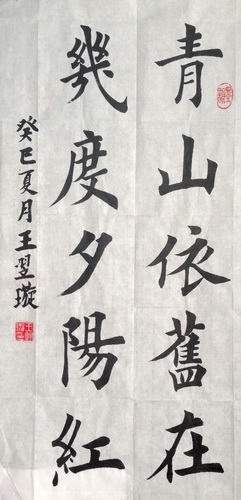 青山依舊在
幾度夕陽紅
癸巳夏月王翌璇